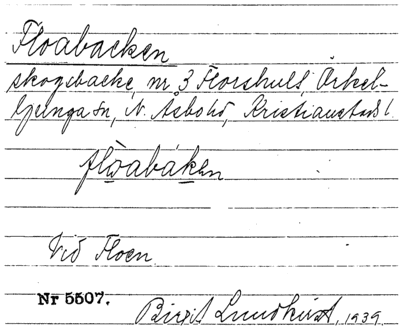 Floabacken
skogsbacke, nr 3 Florshult, Örkel-
ljunga sn, N. Åsbo hd, Kristianstads l.
flωabáken
Vid Floen
Nr 5507.
Birgit Lundkvist, 1939.